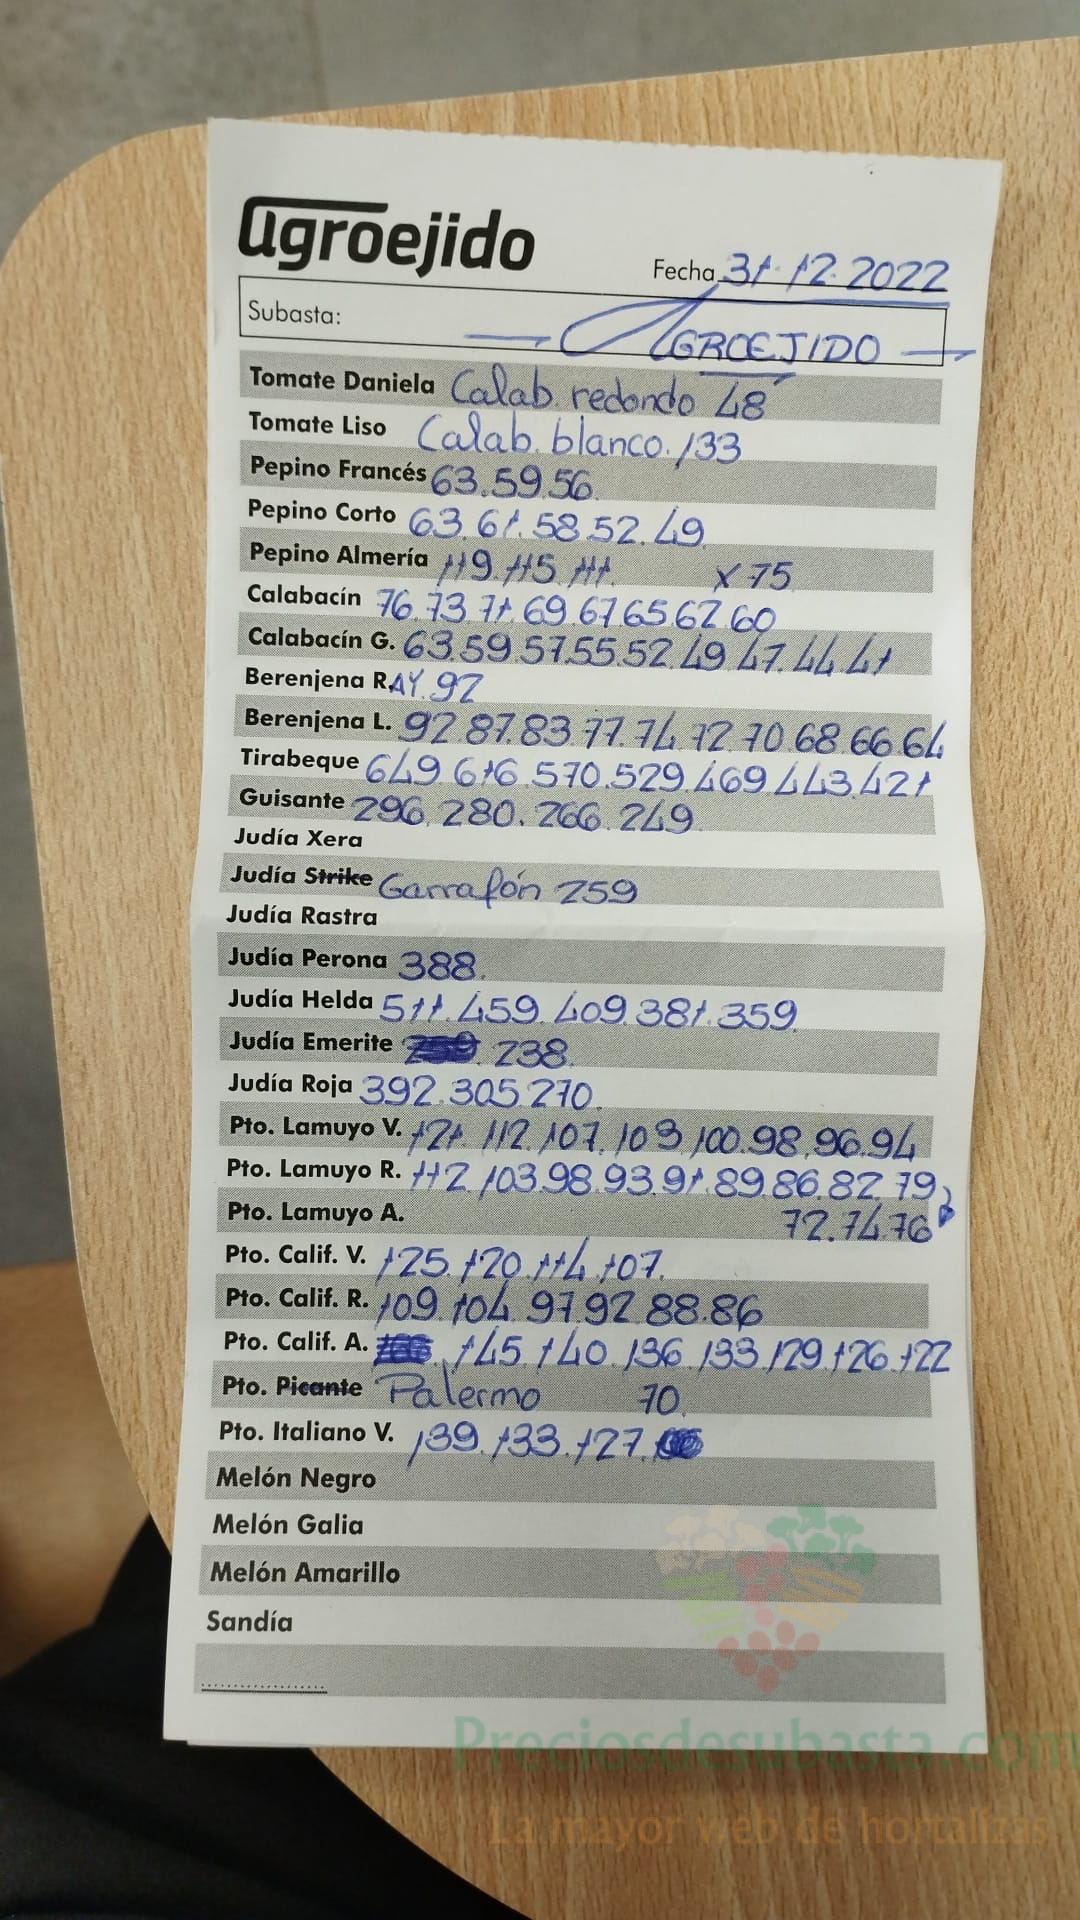 agroejido
Fecha 31.12.2022
Subasta: AGROEJIDO
Tomate Daniela Calab. redondo 48
Tomate Liso Calab. blanco. 133
Pepino Francés 63.59.56.
Pepino Corto 63.61.58.52.49.
Pepino Almería 119.115.111. x 75
Calabacín 76.73.71.69.67.65.62.60
Calabacín G. 63.59.57.55.52.49.47.44.41
Berenjena RAY.92
Berenjena L. 92.87.83.77.74.72.70.68.66.64
Tirabeque 649.616.570.529.469.443.421
Guisante 296.280.266.249.
Judía Xera
Judía Strike Garrafón 259
Judía Rastra
Judía Perona 388.
Judía Helda 511.459.409.381.359.
Judía Emerite 238.
Judía Roja 392.305.270.
Pto. Lamuyo V. 121.112.107.103.100.98.96.94
Pto. Lamuyo R. 112.103.98.93.91.89.86.82.79
Pto. Lamuyo A. 72.74.76
Pto. Calif. V. 125.120.114.107.
Pto. Calif. R. 109.104.97.92.88.86
Pto. Calif. A. 145.140.136.133.129.126.122
Pto. Picante Palermo 70.
Pto. Italiano V. 139.133.127.
Melón Negro
Melón Galia
Melón Amarillo
Sandía
Preciosdesubasta.com
La mayor web de hortalizas